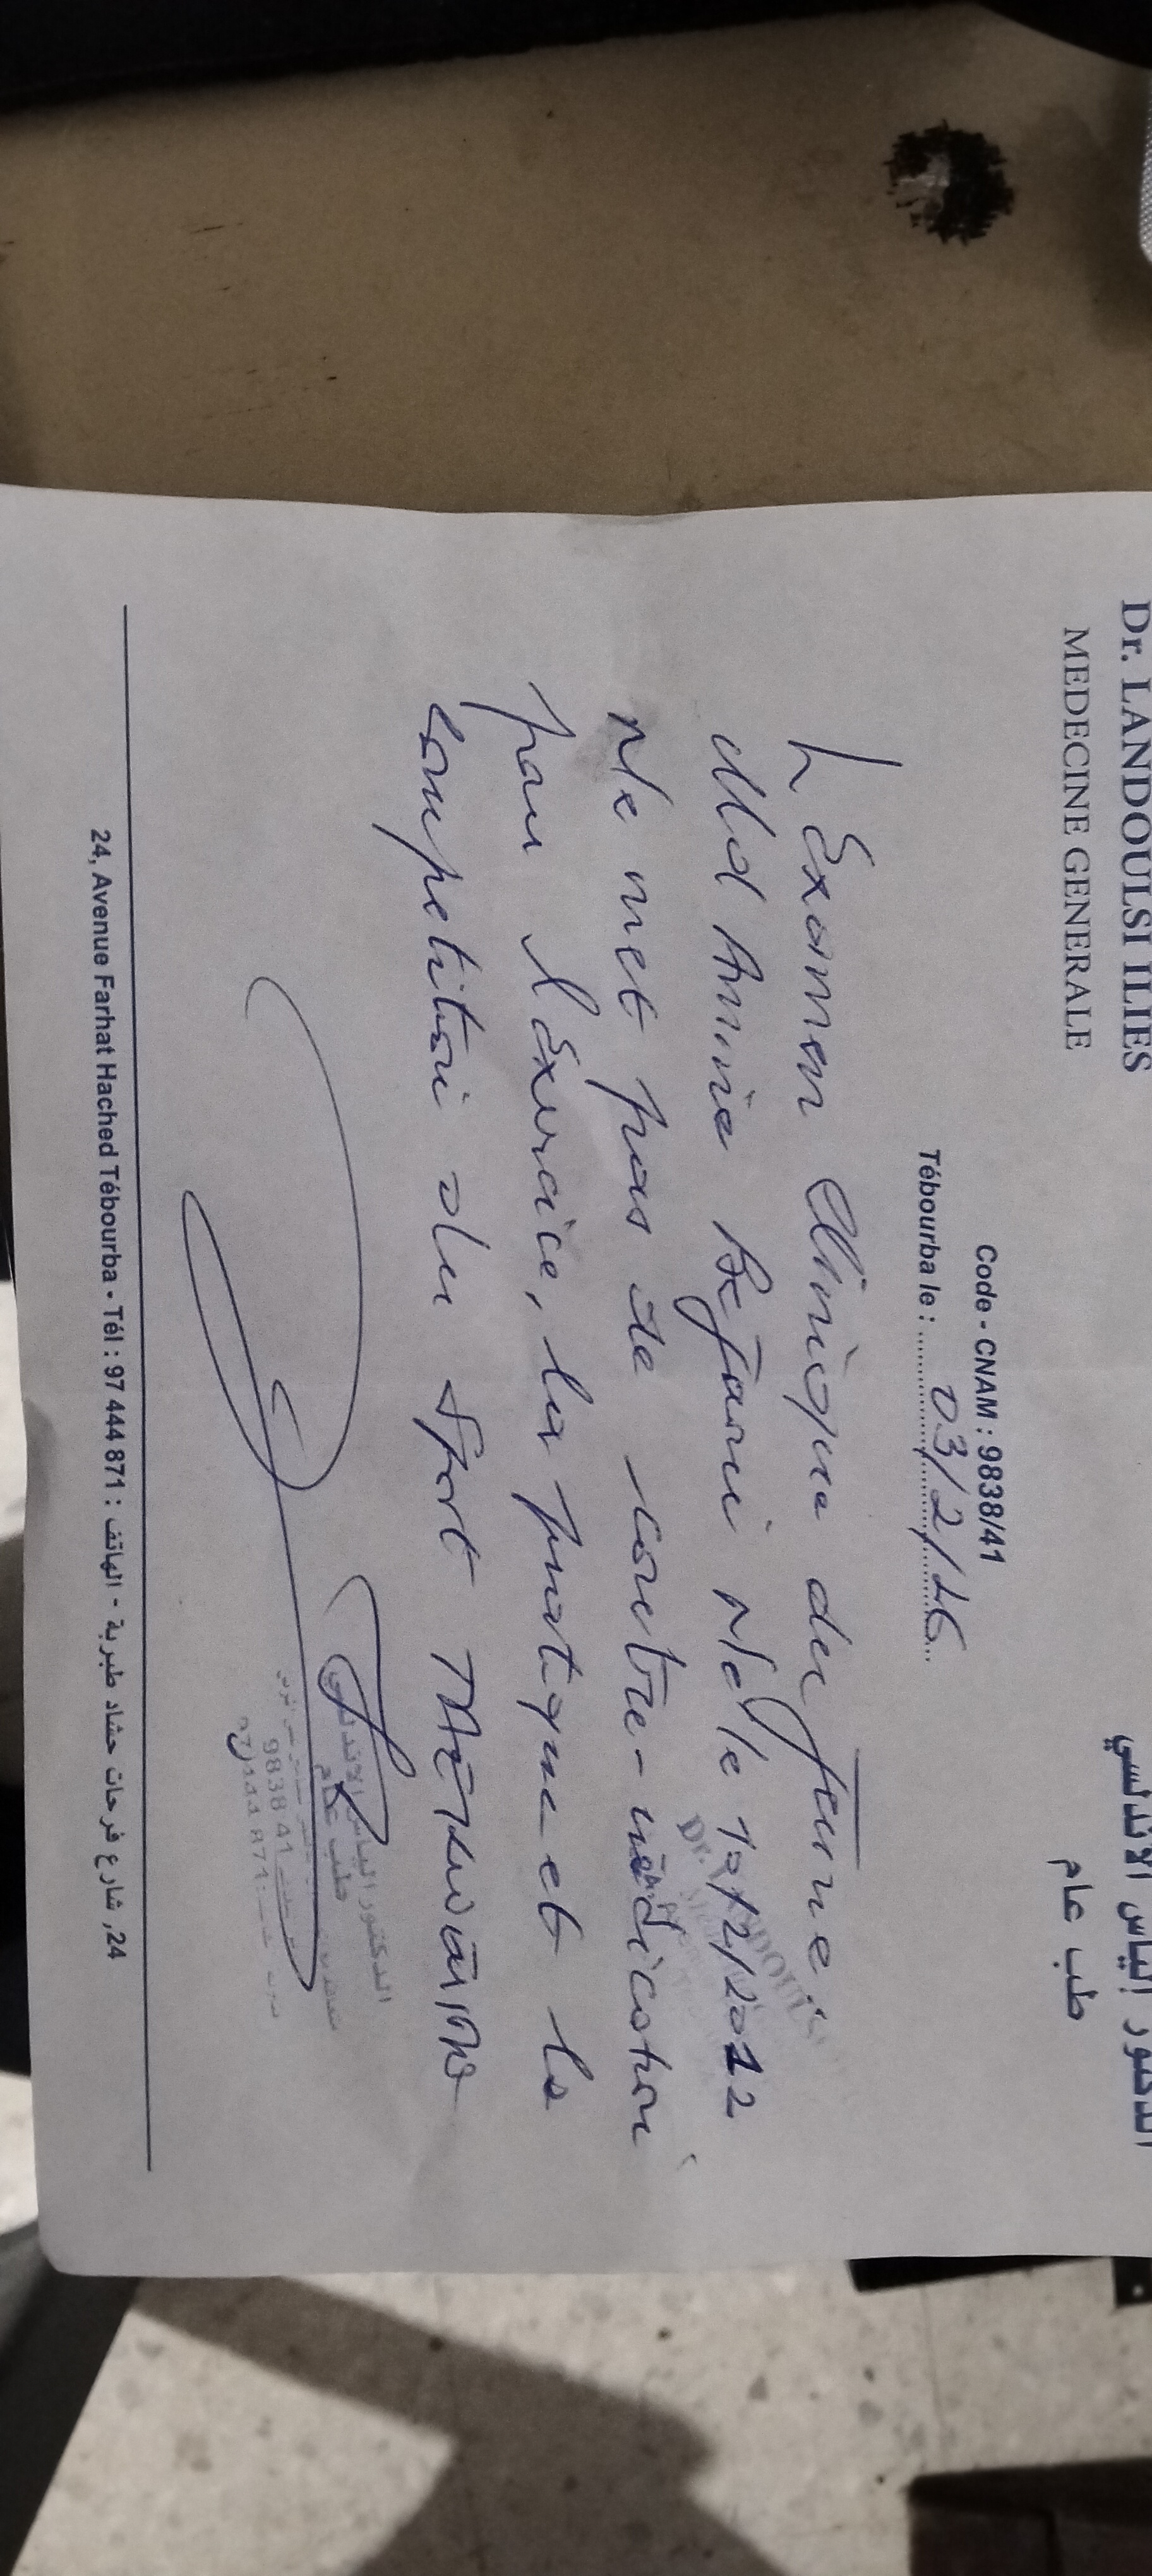 Dr. LANDOULSI ILIES
MEDECINE GENERALE
الدكتور إلياس الاندلسي
طب عام
Code - CNAM : 9838/41
Tébourba le : 03/2/26
L'Examen Clinique du Jeune :
Md Amine Bejaoui Né le 10/2/2012
Ne met pas de contre-indication
pour l'Exercice, la pratique et la
competition du sport
الدكتور الياس الاندلسي
طب عام
9838 41
97 444 871
24, Avenue Farhat Hached Tébourba - Tél : 97 444 871 : الهاتف - 24, شارع فرحات حشاد طبربة